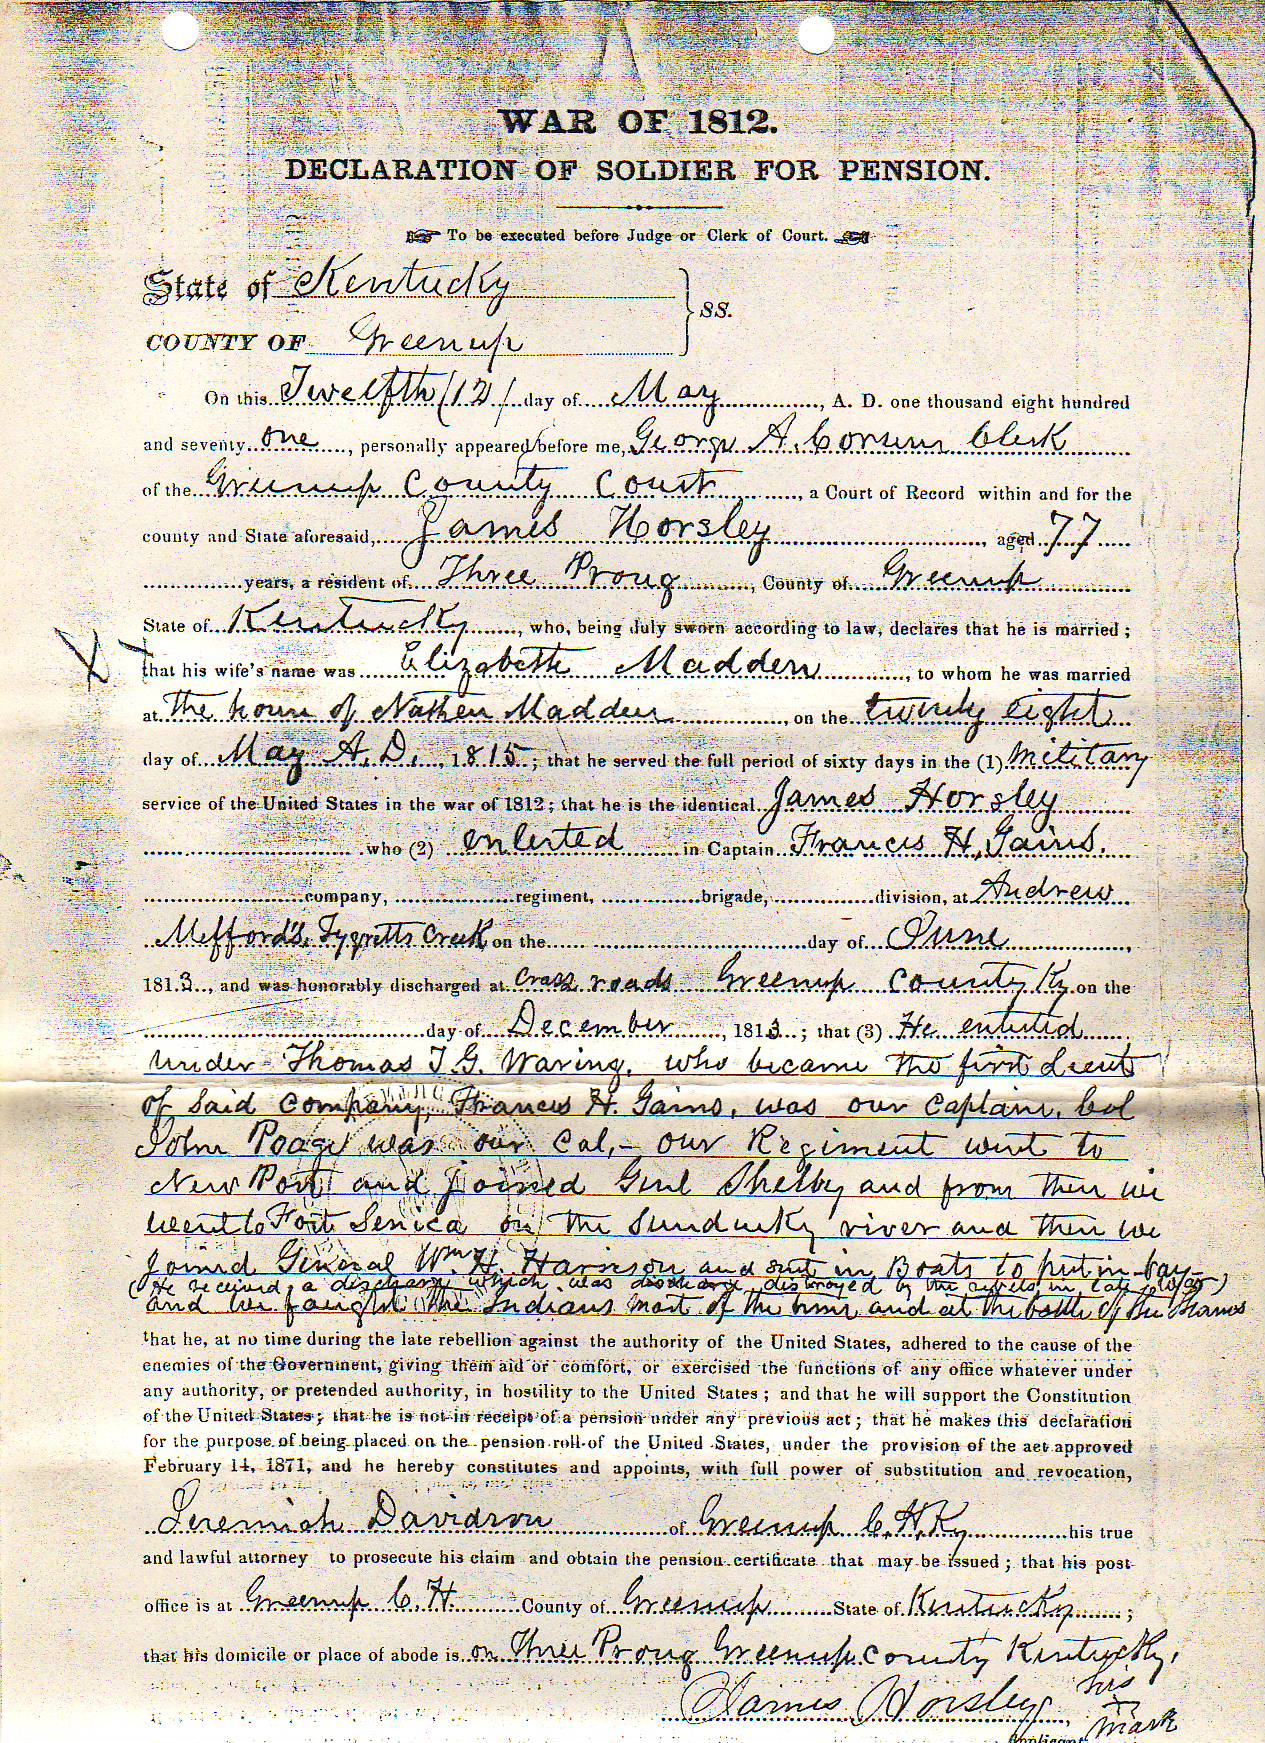 WAR OF 1812.
DECLARATION OF SOLDIER FOR PENSION.
To be executed before Judge or Clerk of Court.
State of Kentucky
COUNTY OF Greenup
} SS.
On this Twelfth (12) day of May, A. D. one thousand eight hundred
and seventy one, personally appeared before me, George A. Clerk
of the Greenup County Court, a Court of Record within and for the
county and State aforesaid, James Horsley, aged 77
years, a resident of Three Prong, County of Greenup
State of Kentucky, who, being duly sworn according to law, declares that he is married;
X that his wife's name was Elizabeth Madden, to whom he was married
at the house of Nathen Madden, on the twenty eight
day of May A.D., 1815; that he served the full period of sixty days in the (1) Military
service of the United States in the war of 1812; that he is the identical James Horsley
who (2) enlested in Captain Francis H. Gains.
company, regiment, brigade, division, at Andrew
Meffords, Tygretts Creek on the day of June,
1813, and was honorably discharged at Cross roads Greenup County Ky on the
day of December, 1813; that (3) He entered
under Thomas T. G. Waring, who became the first Lieut
of said company, Francis H. Gains, was our captain, Col
John Poage was our Col,- our Regiment went to
New Port and joined Genl Shelby and from then we
went to Fort Senica on the Sundusky river and then we
joined General Wm H. Harrison and sut in Boats to put in bay-
(He received a discharge which was destroyed by the rebels in late war)
and we faught the Indians most of the time and at the battle of the Thames
that he, at no time during the late rebellion against the authority of the United States, adhered to the cause of the
enemies of the Government, giving them aid or comfort, or exercised the functions of any office whatever under
any authority, or pretended authority, in hostility to the United States; and that he will support the Constitution
of the United States; that he is not in receipt of a pension under any previous act; that he makes this declaration
for the purpose of being placed on the pension roll of the United States, under the provision of the act approved
February 14, 1871, and he hereby constitutes and appoints, with full power of substitution and revocation,
Jeremiah Davidson of Greenup C. H. Ky his true
and lawful attorney to prosecute his claim and obtain the pension certificate that may be issued; that his post
office is at Greenup C. H. County of Greenup State of Kentucky;
that his domicile or place of abode is on Three Prong Greenup County Kentucky,
James Horsley, his
X
mark
Applicant